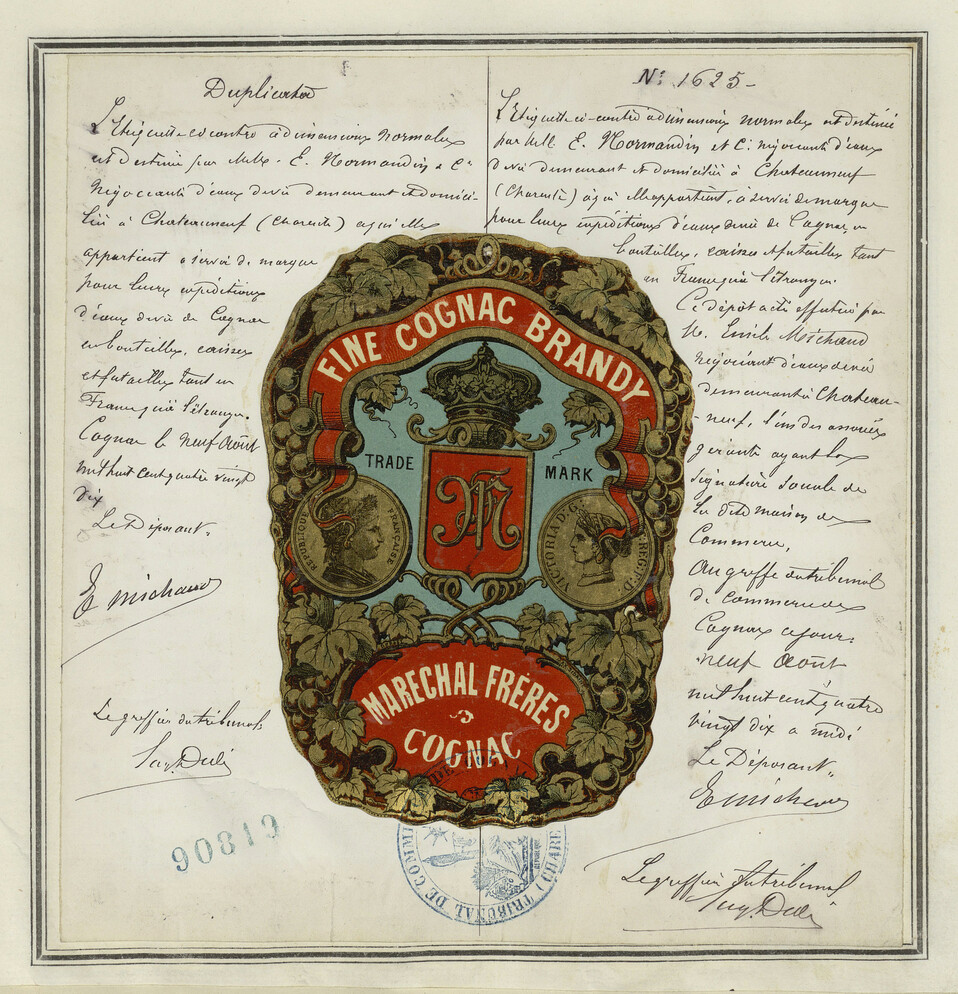 Duplicata
L'Etiquette ci contre à dimensions normales
est destinée par MM. E. Normandin & Cie
Négociants d'eaux de vie demeurant et domici-
liés à Chateauneuf (Charente) à qui elle
appartient à servir de marque
pour leurs expéditions
d'eaux de vie de Cognac
en bouteilles, caisses
et futailles tant en
France qu'à l'étranger.
Cognac le neuf Août
mil huit cent quatre vingt
dix
Le Déposant
E Michaud
Le greffier du tribunal
90819
Nº 1625
L'Etiquette ci-contre à dimensions normales est destinée
par MM. E. Normandin et Cie négociants d'eaux
de vie demeurant et domiciliés à Chateauneuf
(Charente) à qui elle appartient, à servir de marque
pour leurs expéditions d'eaux de vie de Cognac, en
bouteilles, caisses & futailles tant
en France qu'à l'étranger.
Ce dépôt a été effectué par
M. Emile Michaud
négociant d'eaux de vie
demeurant à Chateau-
-neuf, l'un des associés
gérants ayant la
signature sociale de
la dite maison de
Commerce,
Au greffe du tribunal
de commerce de
Cognac ce jour
neuf Août
mil huit cent quatre
vingt dix à midi
Le Déposant
E Michaud
Le greffier du tribunal
FINE COGNAC BRANDY
TRADE MARK
REPUBLIQUE FRANÇAISE
VICTORIA D.G. REG. F.D
MARECHAL FRÈRES
COGNAC
TRIBUNAL DE COMMERCE